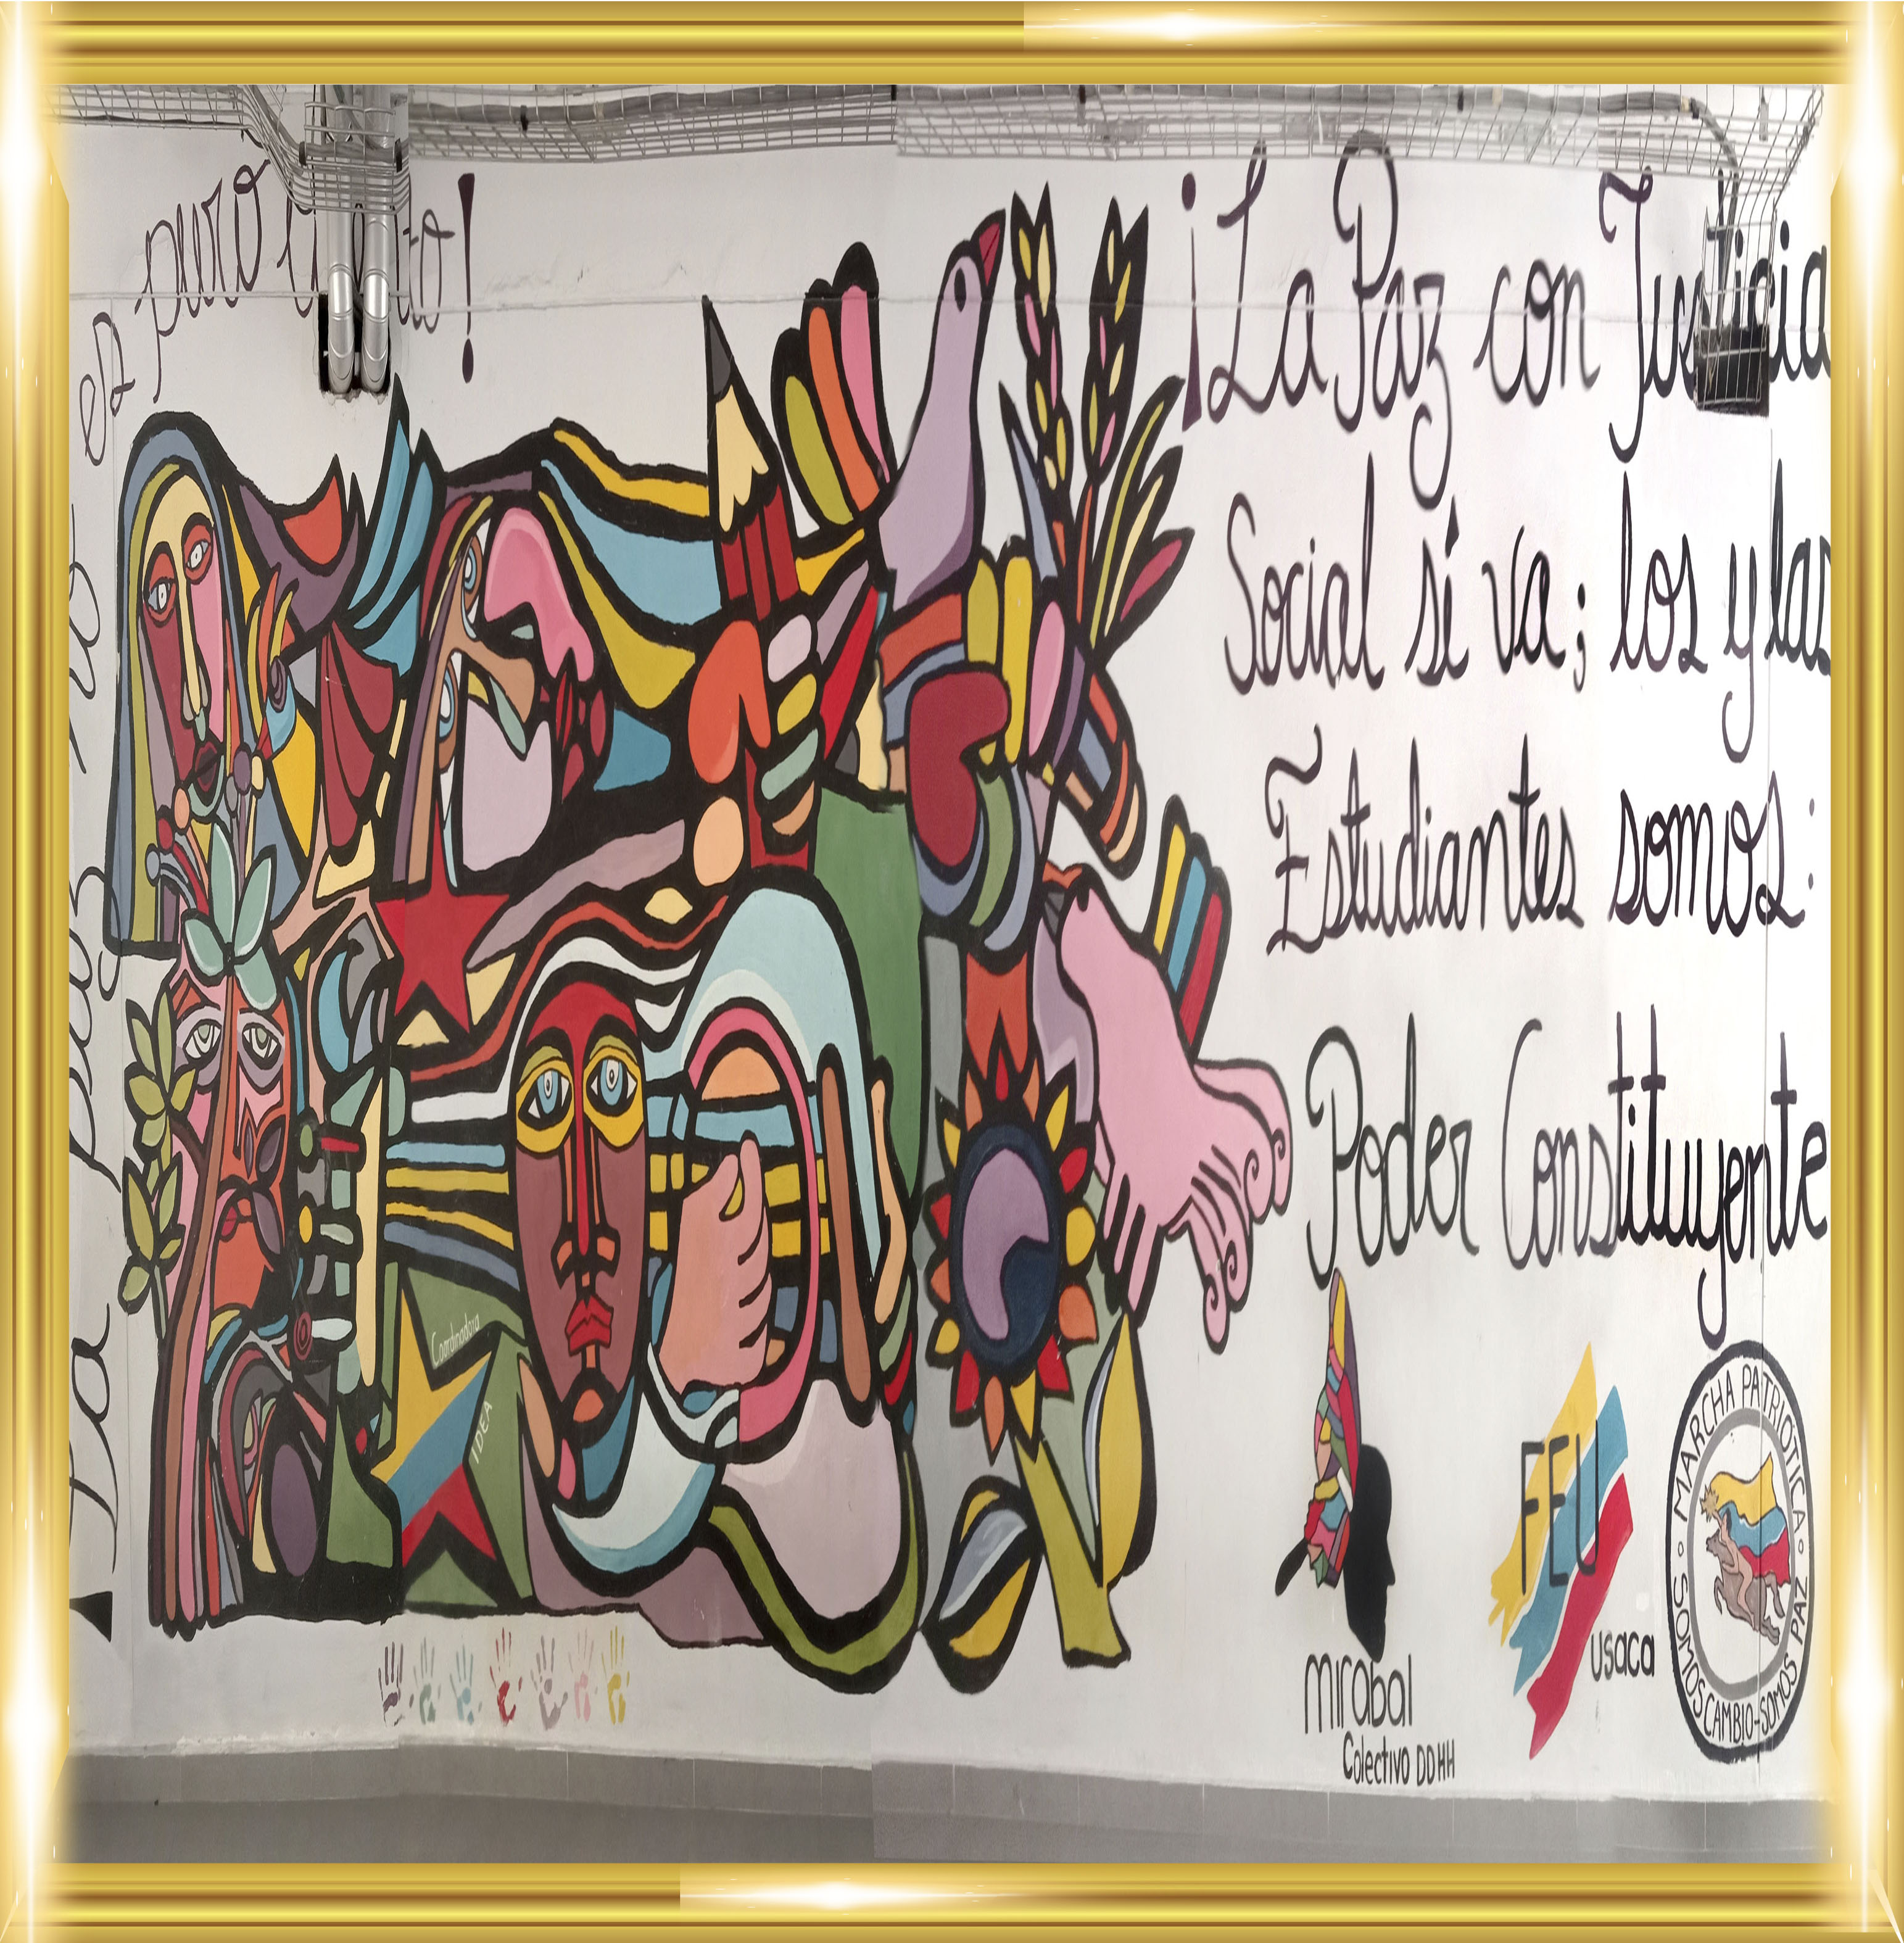 La paz no
es puro cuento!
¡La Paz con Justicia
Social sí va; los y las
Estudiantes somos:
Poder Constituyente
Coordinadora
IDEA
mirabal
Colectivo DDHH
FEU
usaca
MARCHA PATRIÓTICA
SOMOS CAMBIO-SOMOS PAZ